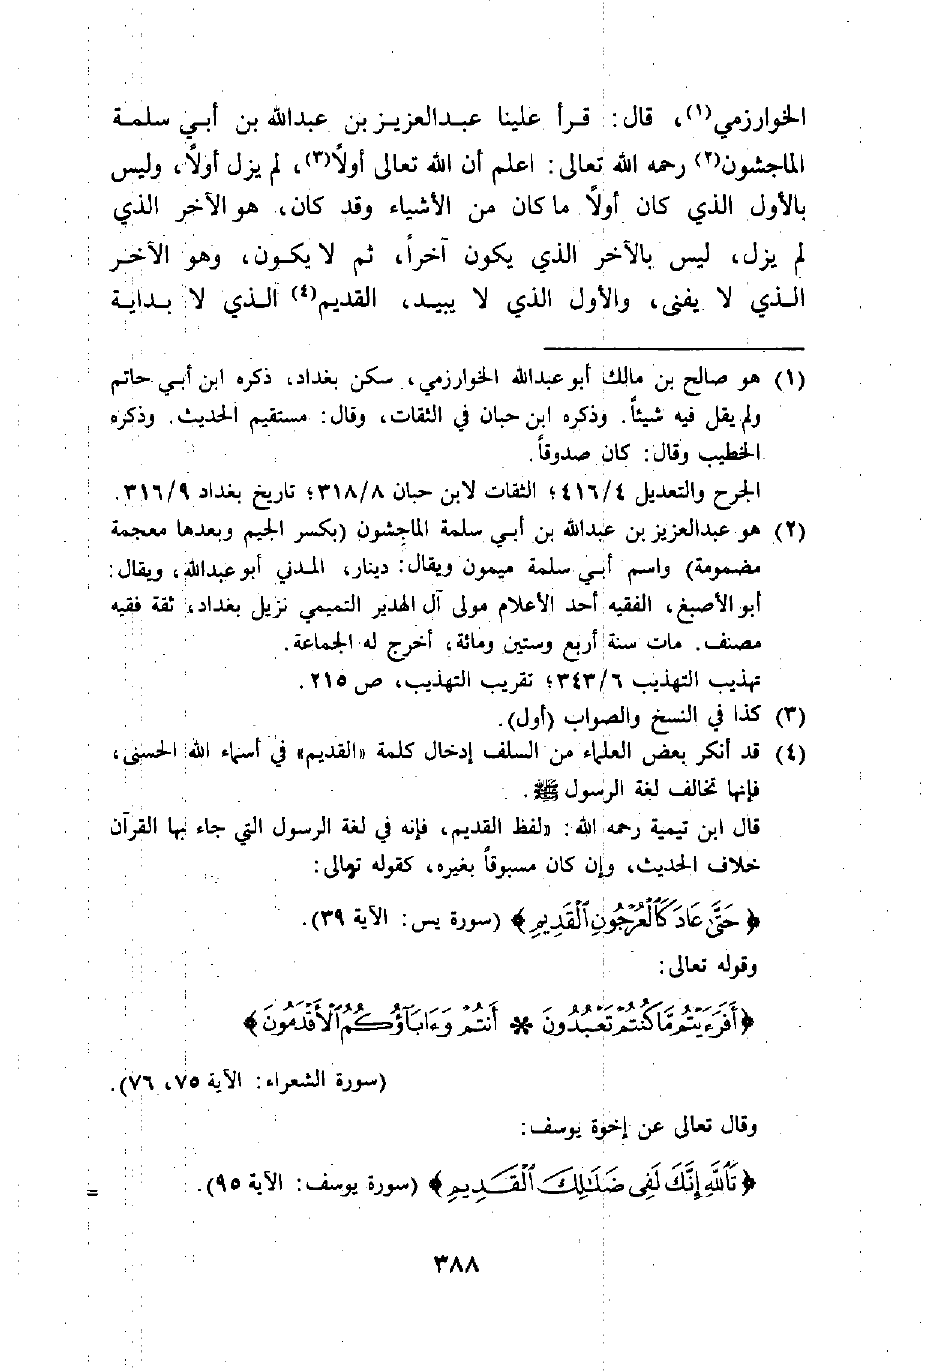 الخوارزمي(١)، قال: قرأ علينا عبدالعزيز بن عبدالله بن أبي سلمة
الماجشون(٢) رحمه الله تعالى: اعلم أن الله تعالى أولاً(٣)، لم يزل أولاً، وليس
بالأول الذي كان أولاً ما كان من الأشياء وقد كان، هو الآخر الذي
لم يزل، ليس بالآخر الذي يكون آخراً، ثم لا يكون، وهو الآخر
الذي لا يفنى، والأول الذي لا يبيد، القديم(٤) الذي لا بداية
(١) هو صالح بن مالك أبو عبدالله الخوارزمي، سكن بغداد، ذكره ابن أبي حاتم
ولم يقل فيه شيئاً. وذكره ابن حبان في الثقات، وقال: مستقيم الحديث. وذكره
الخطيب وقال: كان صدوقاً.
الجرح والتعديل ٤١٦/٤؛ الثقات لابن حبان ٣١٨/٨؛ تاريخ بغداد ٣١٦/٩.
(٢) هو عبدالعزيز بن عبدالله بن أبي سلمة الماجشون (بكسر الجيم وبعدها معجمة
مضمومة) واسم أبي سلمة ميمون ويقال: دينار، المدني أبو عبدالله، ويقال:
أبو الأصبغ، الفقيه أحد الأعلام مولى آل الهدير التميمي نزيل بغداد، ثقة فقيه
مصنف. مات سنة أربع وستين ومائة، أخرج له الجماعة.
تهذيب التهذيب ٣٤٣/٦؛ تقريب التهذيب، ص ٢١٥.
(٣) كذا في النسخ والصواب (أول).
(٤) قد أنكر بعض العلماء من السلف إدخال كلمة «القديم» في أسماء الله الحسنى،
فإنها تخالف لغة الرسول ﷺ.
قال ابن تيمية رحمه الله: «لفظ القديم، فإنه في لغة الرسول التي جاء بها القرآن
خلاف الحديث، وإن كان مسبوقاً بغيره، كقوله تعالى:
﴿حَتَّىٰ عَادَ كَٱلْعُرْجُونِ ٱلْقَدِيمِ﴾ (سورة يس: الآية ٣٩).
وقوله تعالى:
﴿أَفَرَءَيْتُم مَّا كُنتُمْ تَعْبُدُونَ * أَنتُمْ وَءَابَآؤُكُمُ ٱلْأَقْدَمُونَ﴾
(سورة الشعراء: الآية ٧٥، ٧٦).
وقال تعالى عن إخوة يوسف:
﴿تَٱللَّهِ إِنَّكَ لَفِى ضَلَٰلِكَ ٱلْقَدِيمِ﴾ (سورة يوسف: الآية ٩٥).
=
٣٨٨